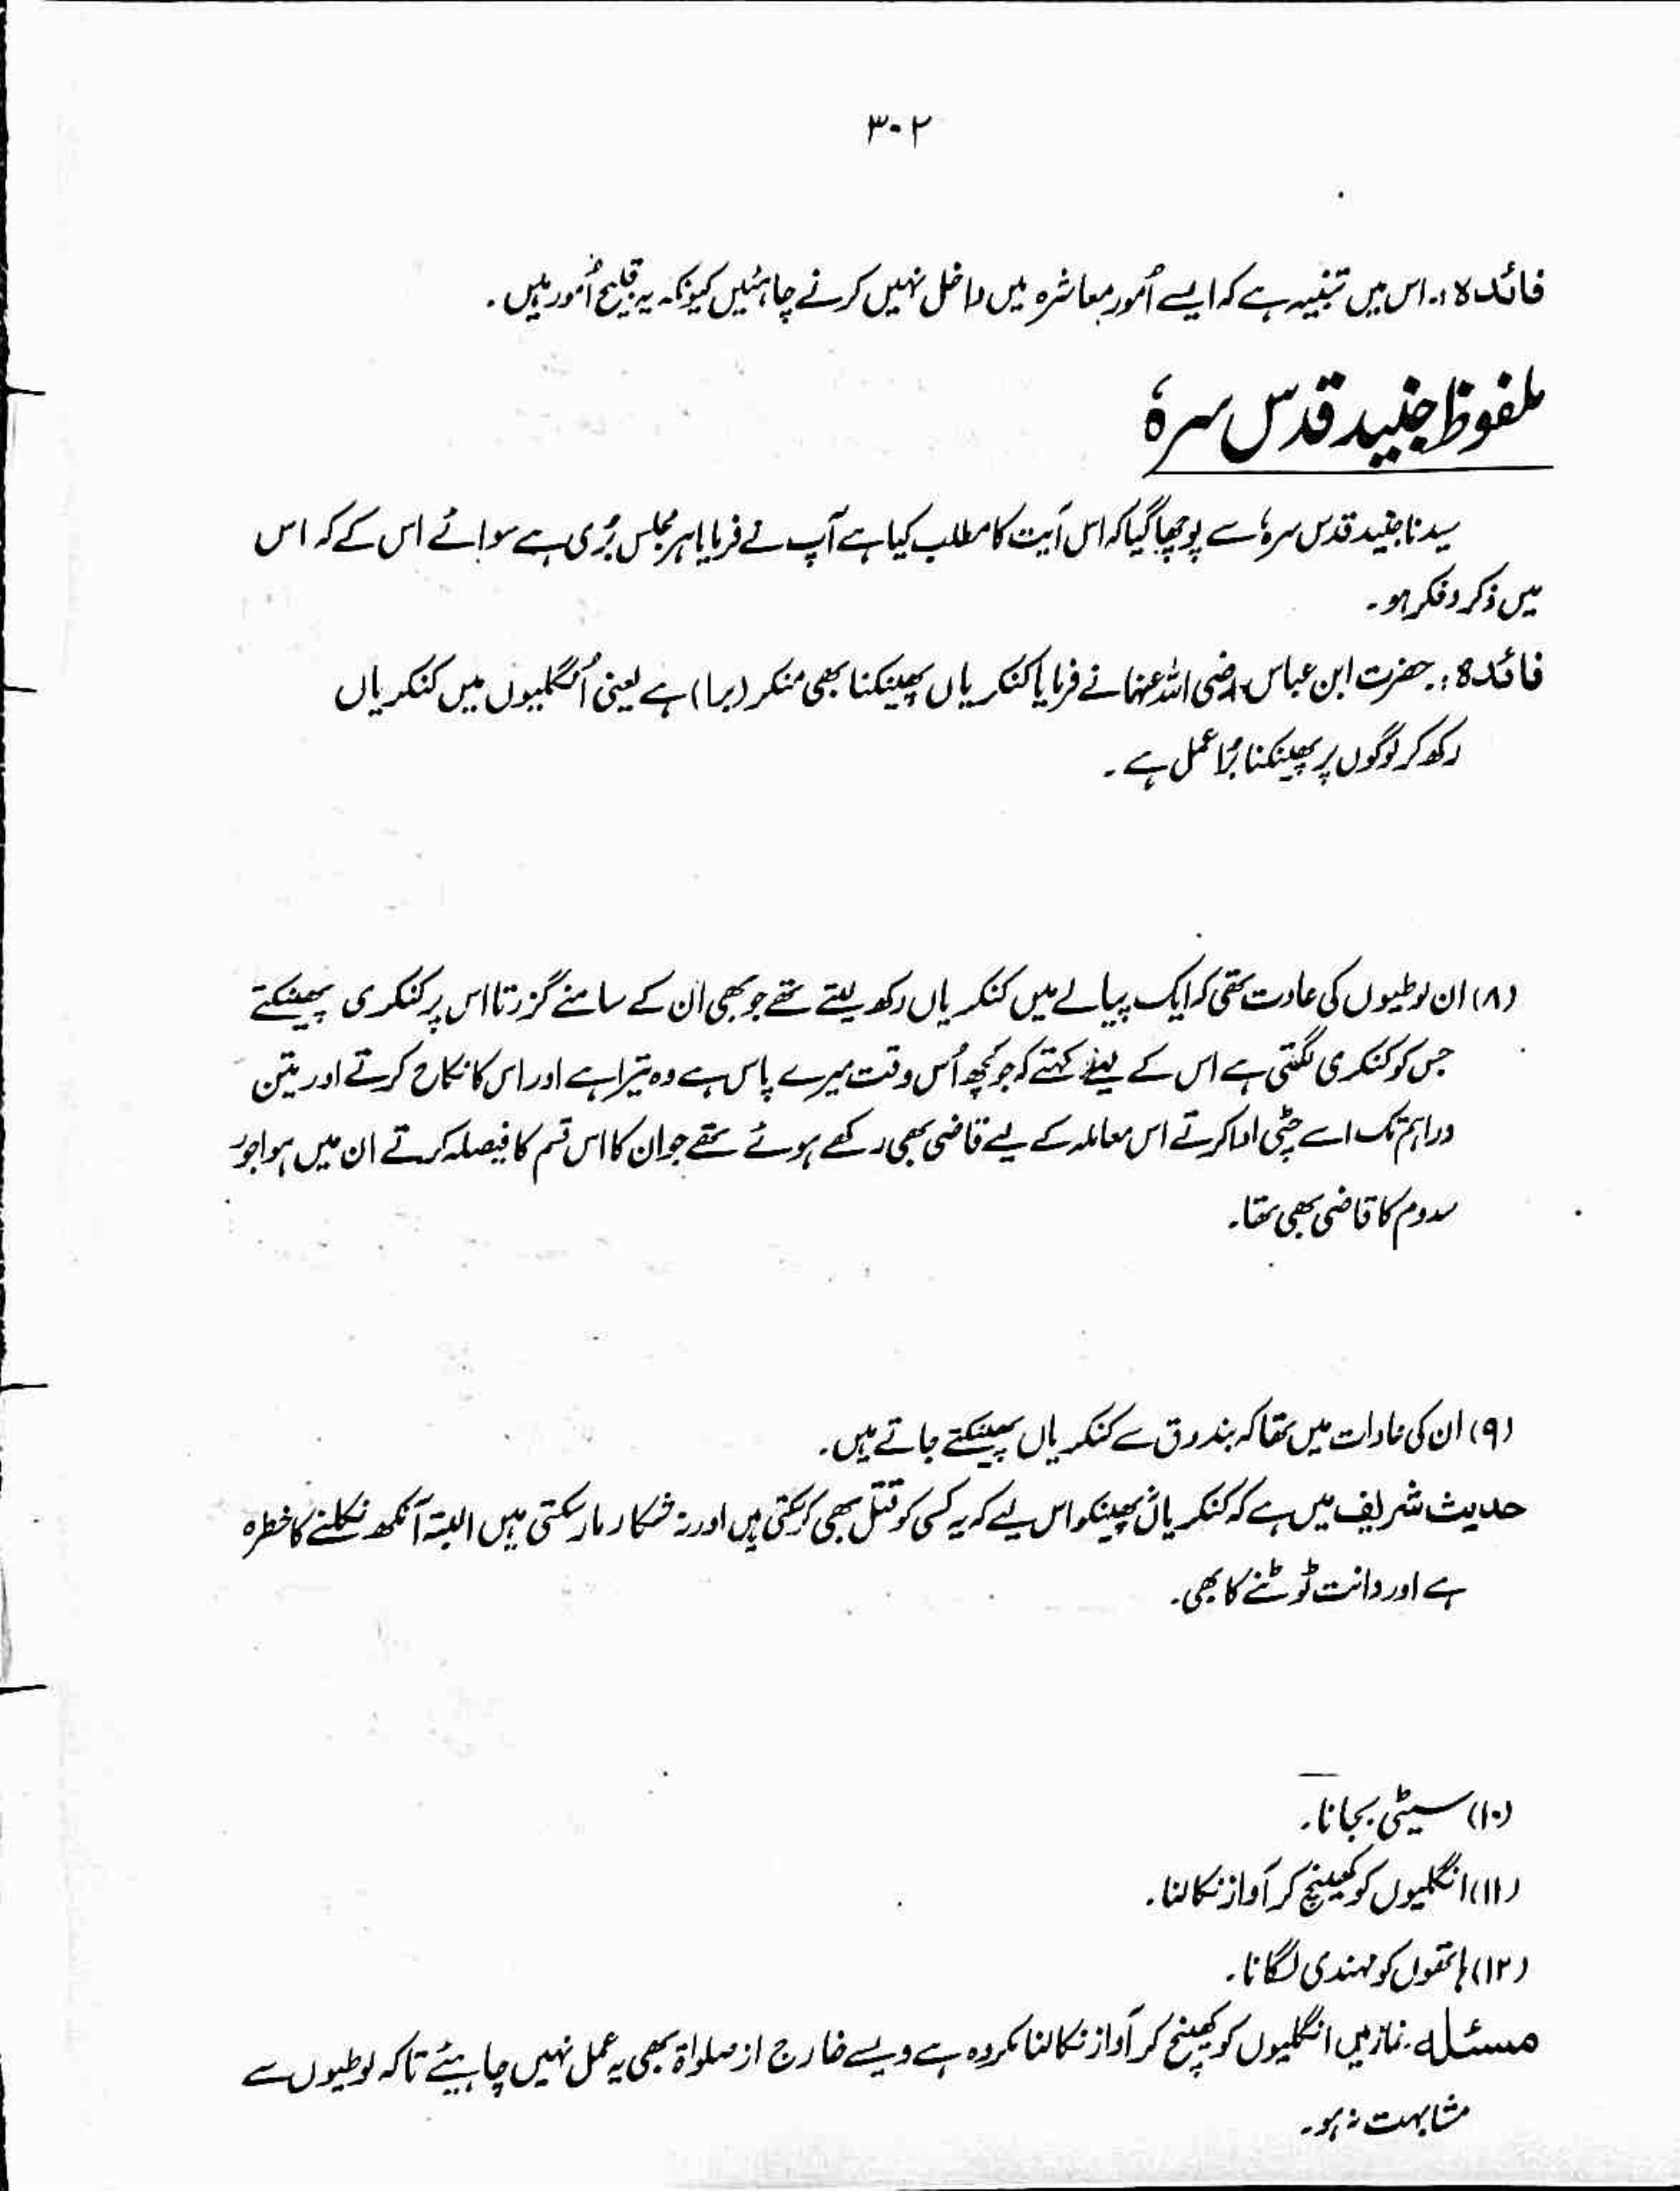 ۳۰۲
فائدہ:۔ اس میں تنبیہ ہے کہ ایسے اُمور معاشرہ میں داخل نہیں کرنے چاہئیں کیونکہ یہ قبیح اُمور ہیں۔
ملفوظ جنید قدس سرہٗ
سیدنا جنید قدس سرہٗ سے پوچھا گیا کہ اس آیت کا مطلب کیا ہے آپ نے فرمایا ہر مجلس بُری ہے سوائے اس کے کہ اس
میں ذکر و فکر ہو۔
فائدہ:۔ حضرت ابن عباس رضی اللہ عنہما نے فرمایا کنکریاں پھینکنا بھی منکر (برا) ہے یعنی اُنگلیوں میں کنکریاں
رکھ کر لوگوں پر پھینکنا بُرا عمل ہے۔
(۸) ان لوطیوں کی عادت تھی کہ ایک پیالے میں کنکریاں رکھ لیتے تھے جو بھی ان کے سامنے گزرتا اس پر کنکری پھینکتے
جس کو کنکری لگتی ہے اس کے لیئے کہتے کہ جو کچھ اُس وقت میرے پاس ہے وہ تیرا ہے اور اس کا نکاح کرتے اور تین
دراہم تک اسے چٹی ادا کرتے اس معاملہ کے لیے قاضی بھی رکھے ہوئے تھے جو ان کا اس قسم کا فیصلہ کرتے ان میں ہوا جور
سدوم کا قاضی بھی تھا۔
(۹) ان کی عادات میں تھا کہ بندوق سے کنکریاں پھینکتے جاتے ہیں۔
حدیث شریف میں ہے کہ کنکریاں نہ پھینکو اس لیے کہ یہ کسی کو قتل بھی کر سکتی ہیں اور نہ شکار مار سکتی ہیں البتہ آنکھ نکلنے کا خطرہ
ہے اور دانت ٹوٹنے کا بھی۔
(۱۰) سیٹی بجانا۔
(۱۱) انگلیوں کو کھینچ کر آواز نکالنا۔
(۱۲) ہاتھوں کو مہندی لگانا۔
مسئلہ۔ نماز میں انگلیوں کو کھینچ کر آواز نکالنا مکروہ ہے ویسے خارج از صلواۃ بھی یہ عمل نہیں چاہیئے تاکہ لوطیوں سے
مشابہت نہ ہو۔